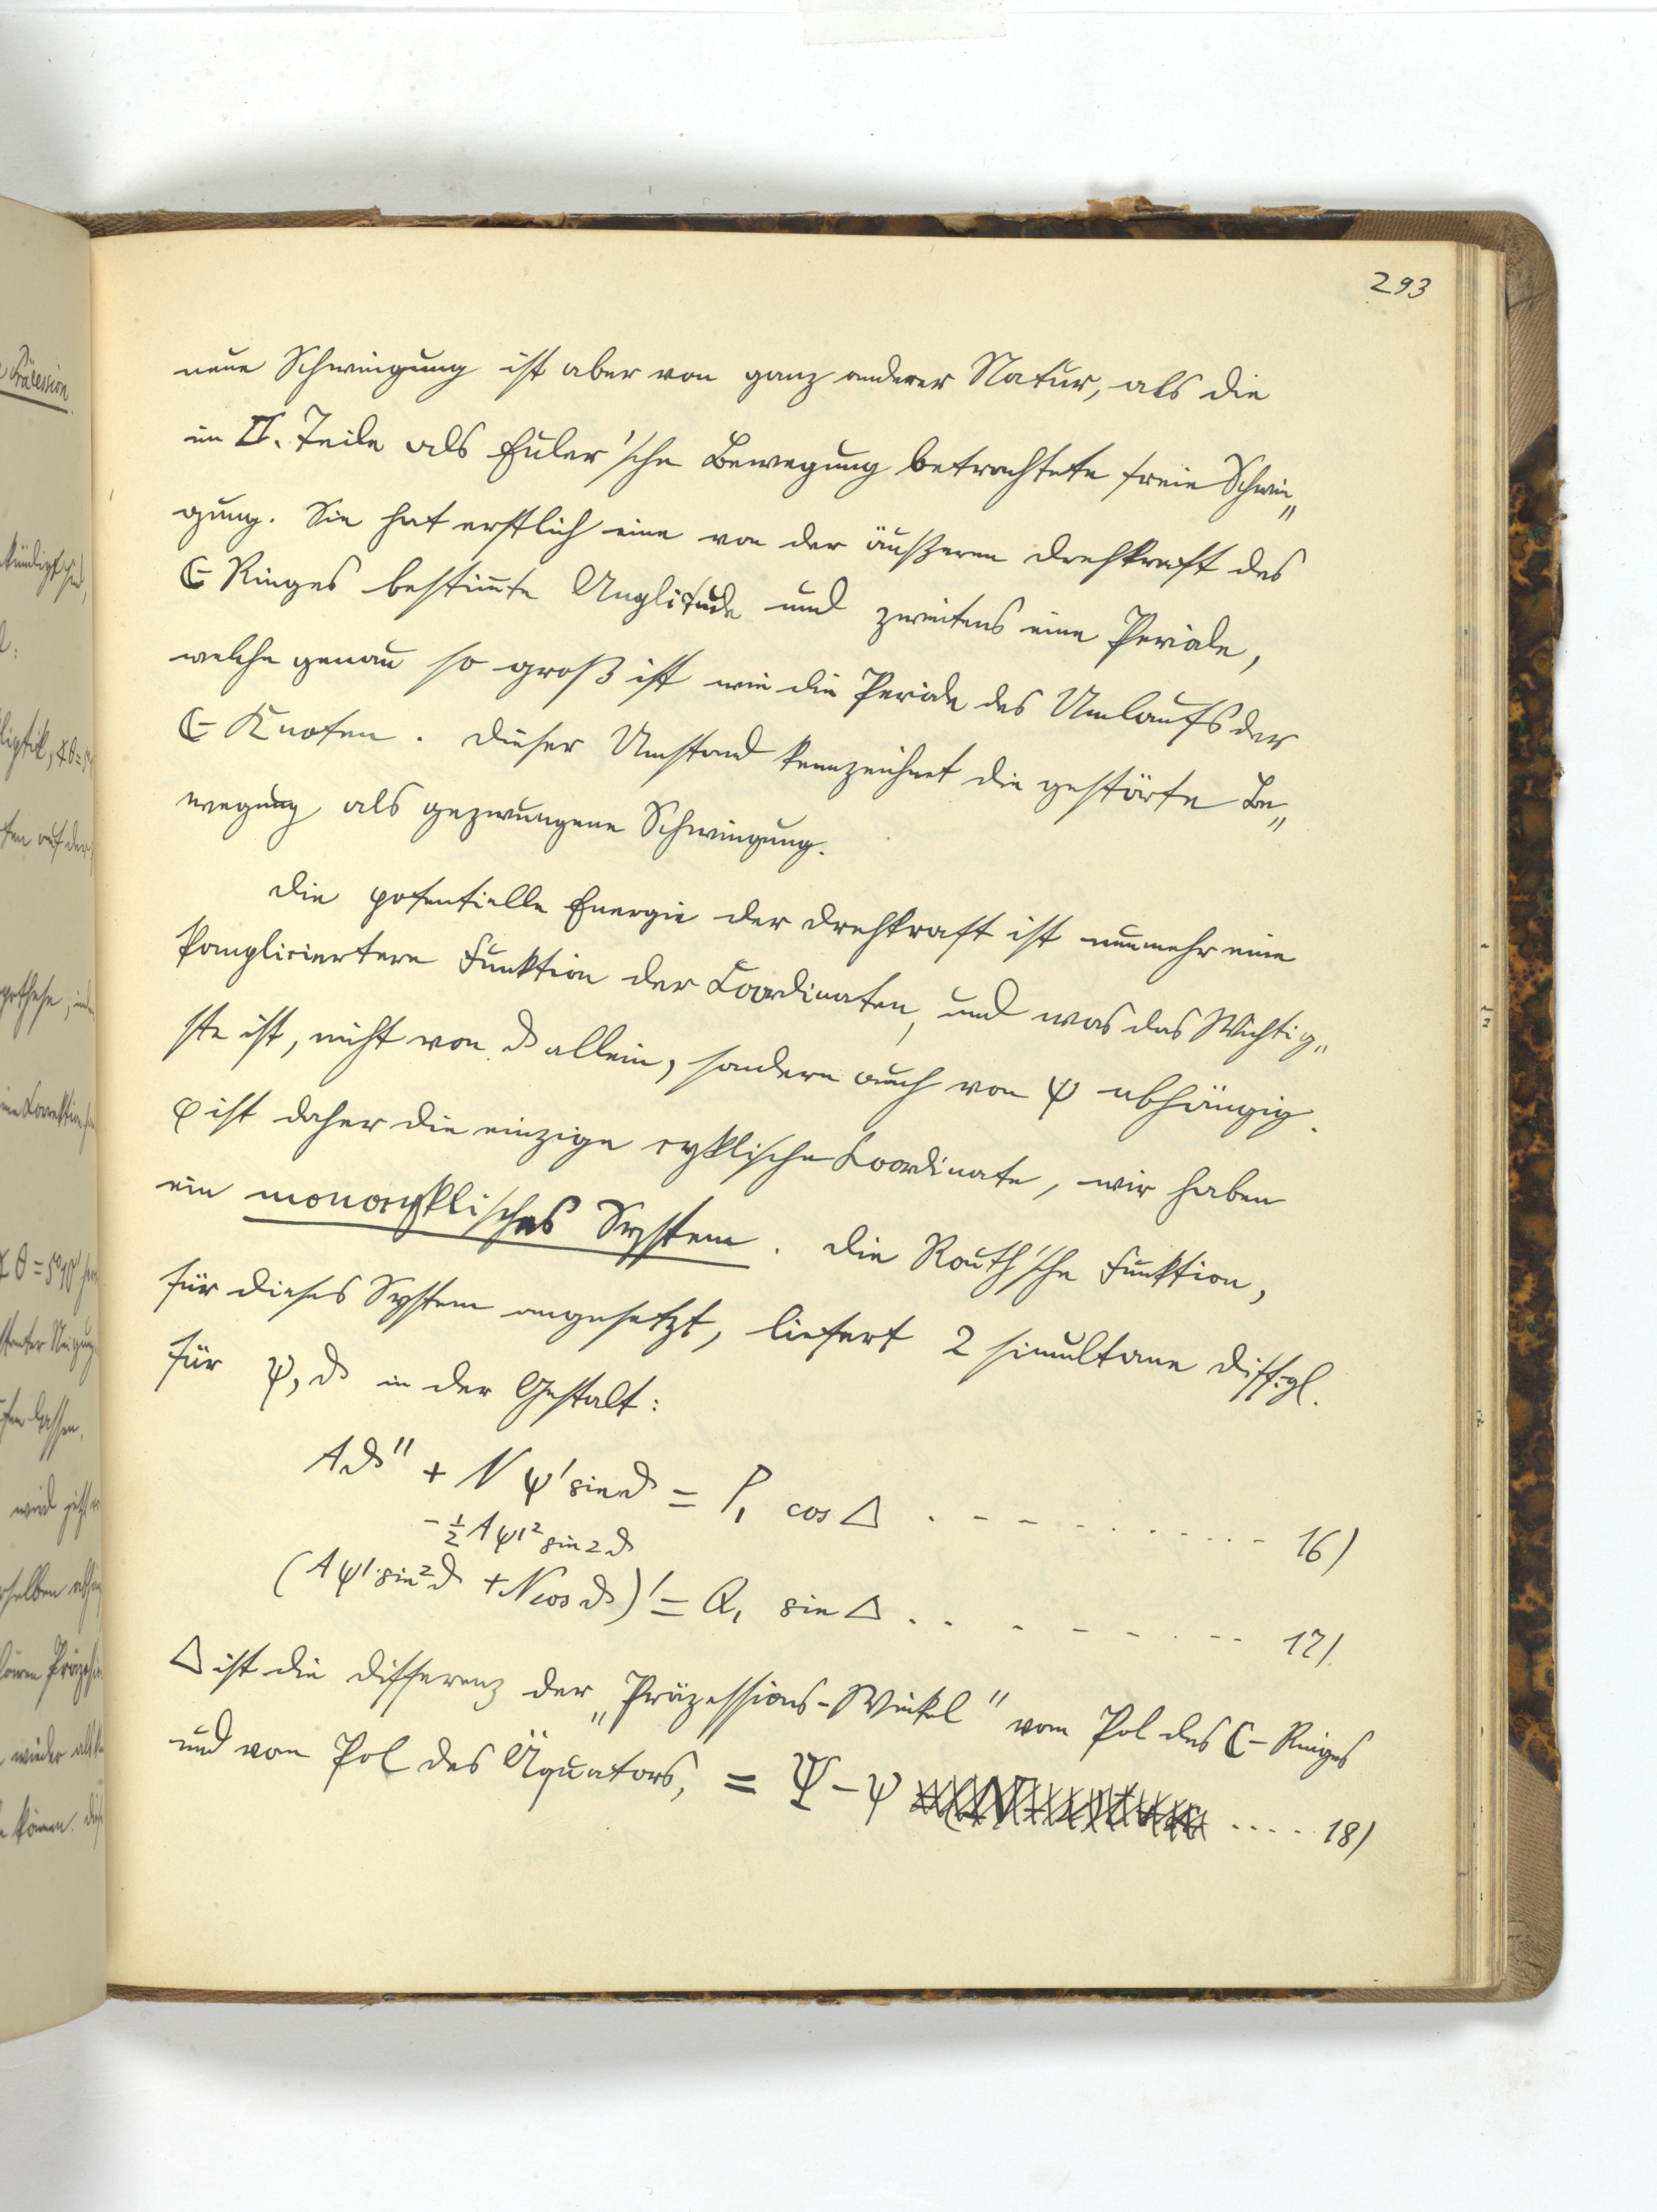 293
neue Schwingung ist aber von ganz anderer Natur, als die
im II. Teile als Euler'sche Bewegung betrachtete freie Schwin„
gung. Sie hat erstlich eine von der äußeren Drehkraft des
☾-Ringes bestim̅te Amplitude und zweitens eine Periode,
welche genau so groß ist wie die Periode des Umlaufs der
☾-Knoten. Dieser Umstand kennzeichnet die gestörte Be„
wegung als gezwungene Schwingung.
Die potentielle Energie der Drehkraft ist nunmehr eine
kompliciertere Funktion der Coordinaten, und was das Wichtig„
ste ist, nicht von ϑ allein, sondern auch von ψ abhängig.
φ ist daher die einzige cyklische Coordinate, wir haben
ein monocyklisches System. Die Routh'sche Funktion,
für dieses System angesetzt, liefert 2 simultane Diffgl.
für ψ, ϑ in der Gestalt:
Aϑ'' + N ψ' sin ϑ = P₁ cos Δ . - - - - . . - . - - - 16)
- ½ A ψ'² sin 2ϑ
(A ψ' sin² ϑ + N cos ϑ)' = Q₁ sin Δ . . - - - - . - - 17)
Δ ist die Differenz der „Präzessions-Winkel" vom Pol des ☾-Ringes
und vom Pol des Äquators, = Ψ - ψ .... 18)
Präcession
kündigt sind,
ϑ = 5°10'
lassen.
wird jetzt
wieder als
können. Dies